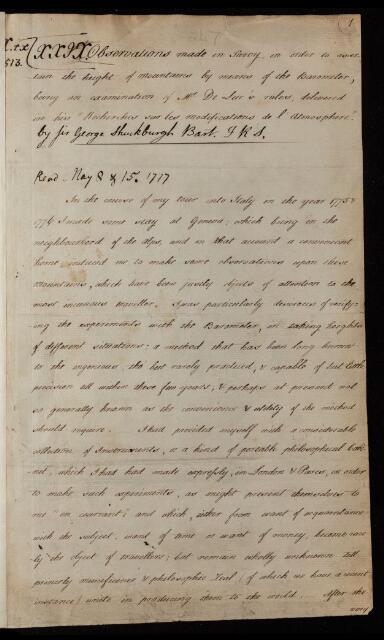 1
513.
XXIX. Observations made in Savoy, in order to ascer-
tain the height of mountains by means of the Barometer,
being an examination of Mr. De Luc's rules, delivered
in his "Recherches sur les modifications de l'Atmosphere."
by Sir George Shuckburgh Bart. F.R.S.
Read May 8 & 15. 1717
In the course of my tour into Italy in the year 1775 &
1776 I made some stay at Geneva, which being in the
neighbourhood of the alps, and on that account a convenient
home induced me to make some observations upon these
Mountains, which have been justly objects of attention to the
most incurious traveller. I was particularly desirous of verify-
ing the experiments with the Barometer, in taking heights
of different situations: a method that has been long known
to the ingenious, tho' but rarely practised, & capable of but little
precision till within these few years, & perhaps at present not
so generally known as the convenience & utility of the method
should require. I had provided myself with a considerable
collection of Instruments, a kind of portable philosophical Cabi-
net, which I had had made expressly, in London & Paris, in order
to make such experiments, as might present themselves to
me "en courant" and which, either from want of acquaintance
with the subject, want of time or want of money, become rare-
ly the object of travellers; but remain wholly unknown till
princely munificence & philosophic Zeal (of which we have a recent
instance) unite in producing them to the world. After the
very